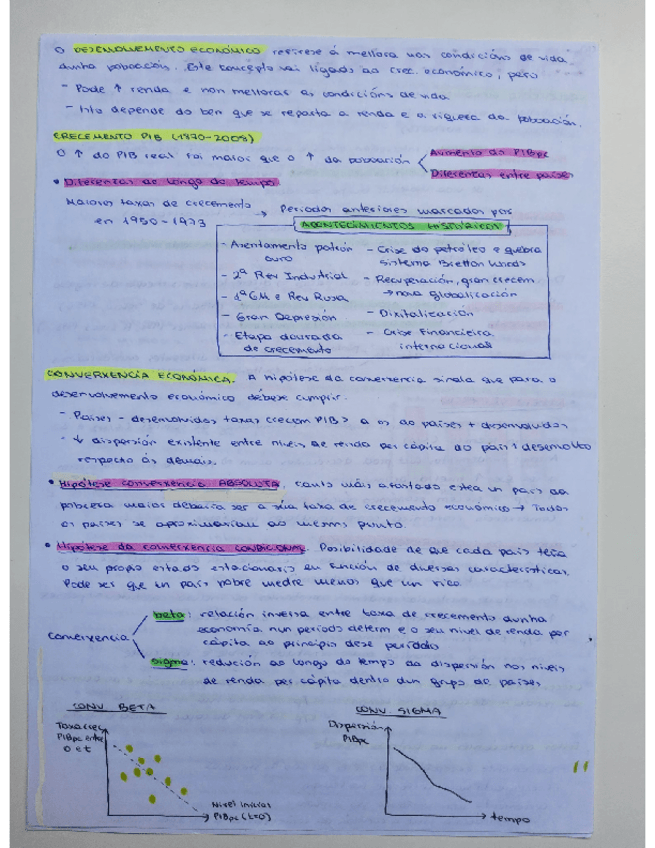 O DESENVOLVEMENTO ECONÓMICO refírese á mellora nas condicións de vida
dunha poboación. Este concepto vai ligado ao crec. económico, pero
- Pode ↑ renda e non mellorar as condicións de vida
- Isto depende do ben que se reparta a renda e a riqueza da poboación.
CRECEMENTO PIB (1870-2008)
O ↑ do PIB real foi maior que o ↑ da poboación
Aumento do PIBpc
Diferenzas entre países
• Diferenzas ao longo do tempo
Maiores taxas de crecemento
en 1950-1973
→ Periodos anteriores marcados por
ACONTECIMIENTOS HISTÓRICOS
- Asentamento patrón
ouro
- 2ª Rev Industrial
- 1ªGM e Rev Rusa
- Gran Depresión
- Etapa dourada
de crecemento
- Crise do petróleo e quebra
sistema Bretton Woods
- Recuperación, gran crecem
→ nova globalización
- Dixitalización
- Crise Financieira
internacional
CONVERXENCIA ECONÓMICA. A hipótese da converxencia sinala que para o
desenvolvemento económico débese cumprir.
- Países - desenvolvidos taxas crecem PIB > a os ao países + desenvolvidos
- ↓ dispersión existente entre niveis de renda per cápita do país desenvolto
respecto ás demais.
• Hipótese converxencia ABSOLUTA, canto máis afastado estea un país da
pobreza maior debería ser a súa taxa de crecemento económico → Todos
os países se aproximarían ao mesmo punto.
• Hipótese da converxencia CONDICIONAL. Posibilidade de que cada país teña
o seu propio estado estacionario en función de diversas características.
Pode ser que un país pobre medre menos que un rico
Converxencia
beta: relación inversa entre taxa de crecemento dunha
economía nun período determ e o seu nivel de renda per
cápita ao principio dese período
sigma: redución ao longo do tempo da dispersión nos niveis
de renda per cápita dentro dun grupo de países
CONV. BETA
Taxa crec
PIBpc entre
0 e t
Nivel inicial
PIBpc (t=0)
CONV. SIGMA
Dispersión
PIBpc
tempo